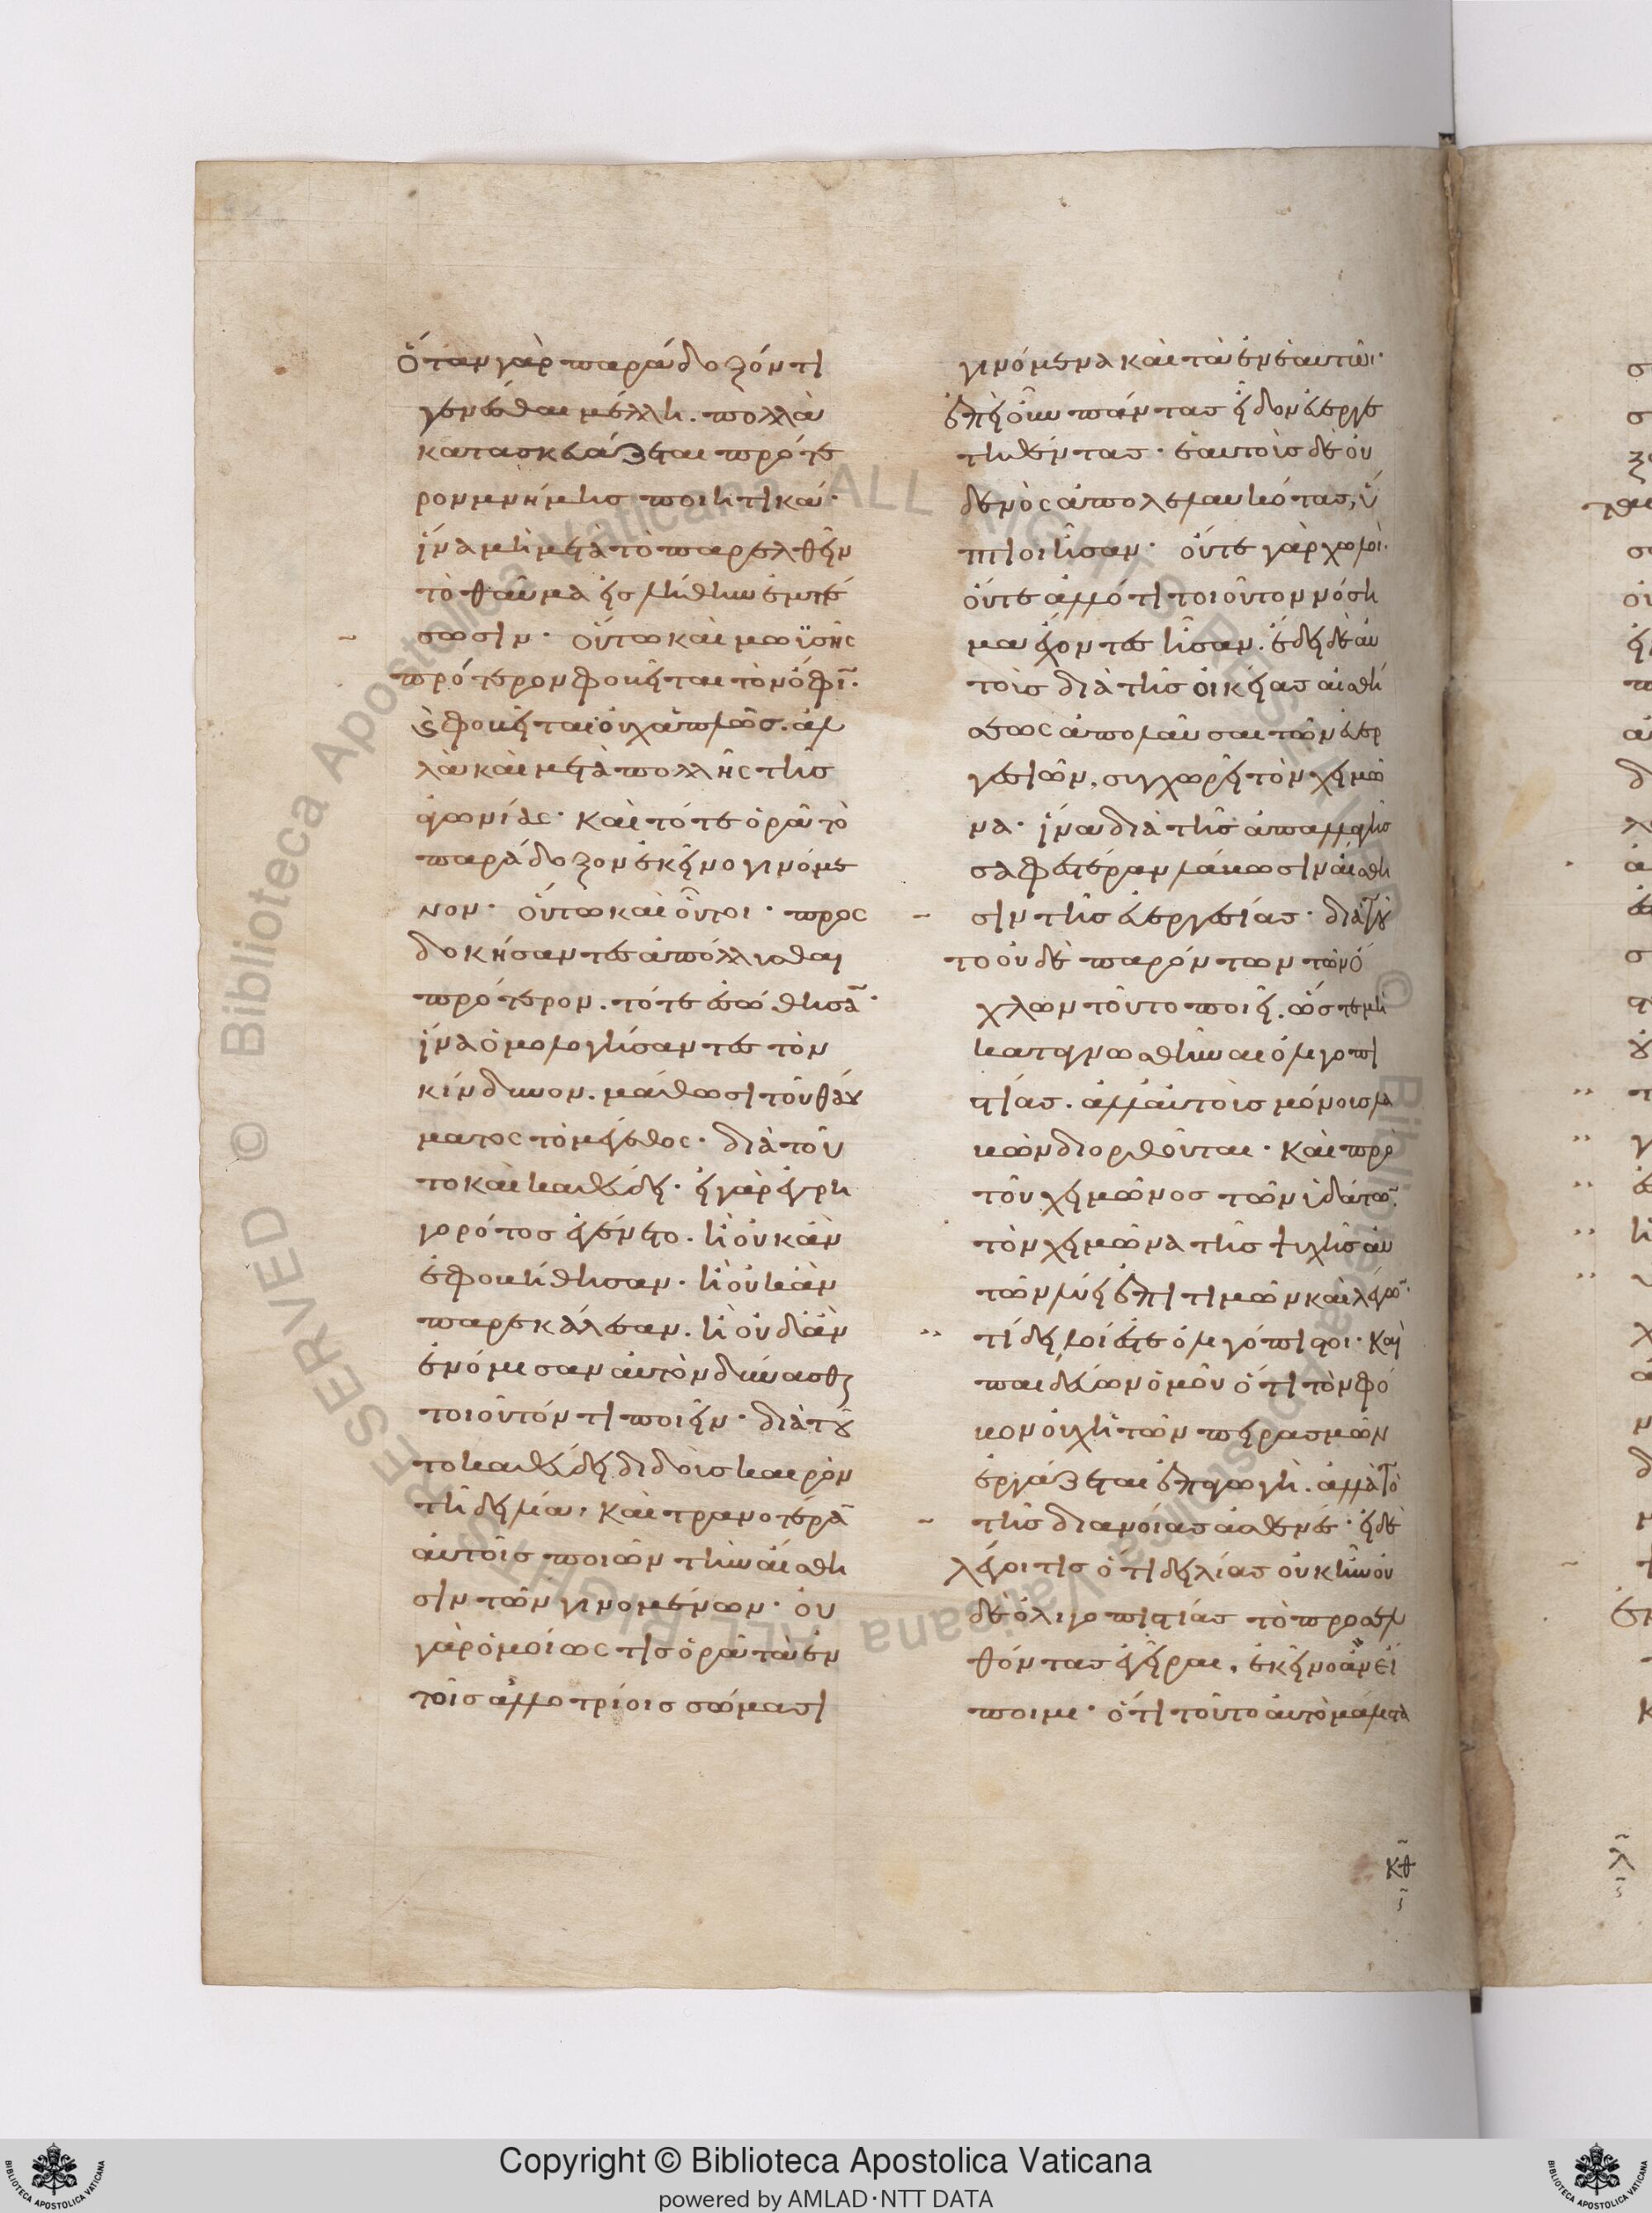 ὅταν γὰρ παράδοξόν τι
γενέσθαι μέλλη. πολλὰ
κατασκευάζεται πρότε
ρον μνήμης ποιητικά·
ἵνα μὴ μετὰ τὸ παρελθεῖν
τὸ θαῦμα εἰς λήθην ἐμπέ
σωσιν· οὕτω καὶ μωϋσῆς
πρότερον φοβεῖται τὸν ὄφι̃·
ϗ φοβεῖται οὐχ ἁπλῶς. ἀλ
λὰ καὶ μετὰ πολλῆς τῆς
ἀγωνίας· καὶ τότε ὁρᾶ τὸ
παράδοξον ἐκεῖνο γινόμε
νον· οὕτω καὶ οὗτοι· προσ
δοκήσαντες ἀπόλλυσθαι
πρότερον. τότε ἐσώθησα̃·
ἵνα ὁμολογήσαντες τὸν
κίνδυνον. μάθωσι τοῦ θαύ
ματος τὸ μέγεθος· διὰ τοῦ
το καὶ καθεύδει· εἰ γὰρ ἐγρη
γορότος ἐγένετο. ἢ οὐκ ἂν
ἐφοβήθησαν· ἢ οὐκ ἂν
παρεκάλεσαν. ἢ οὐδ' ἂν
ἐνόμισαν αὐτὸν δύνασθαι
τοιοῦτόν τι ποιεῖν· διὰ τοῦ
το καθεύδει διδοὺς καιρὸν
τῆ δειλία, καὶ τρανοτέρα̃
αὐτοῖς ποιῶν τὴν αἴσθη
σιν τῶν γινομένων· οὐ
γὰρ ὁμοίως τις ὁρᾶ τὰ ἐν
τοῖς ἀλλοτρίοις σώμασι
γινόμενα καὶ τὰ ἐν ἑαυτῶι·
ἐπεὶ οὖν πάντας εἶδον εὐεργε
τηθέντας· ἑαυτοὺς δὲ οὐ
δενὸς ἀπολελαυκότας, ὕ
πτιοι ἦσαν· οὔτε γὰρ χωλοὶ.
οὔτε ἄλλό τι τοιοῦτον νόση
μα ἔχοντες ἦσαν. ἔδει δὲ αὐ
τοὺς διὰ τῆς οἰκείας αἰσθή
σεως ἀπολαῦσαι τῶν εὐερ
γεσιῶν, συγχωρεῖ τὸν χειμῶ
να· ἵνα διὰ τῆς ἀπαλλαγῆς
σαφεστέραν λάβωσιν αἴσθη
σιν τῆς εὐεργεσίας· διὰ τοῦ
το οὐδὲ παρόντων τῶν ὄ
χλων τοῦτο ποιεῖ. ὥστε μὴ
καταγνωσθῆναι ὀλιγοπι
στίας. ἀλλ' αὐτοὺς μόνους λα
βὼν διορθοῦται· καὶ πρὸ
τοῦ χειμῶνος τῶν ὑδάτω̃.
τὸν χειμῶνα τῆς ψυχῆς αὐ
τῶν λύει ἐπιτιμῶν καὶ λέγω̃·
τί δειλοί ἐστε ὀλιγόπιστοι· καὶ
παιδεύων ὁμοῦ ὅτι τὸν φό
βον οὐχ ἡ τῶν πειρασμῶν
ἐργάζεται ἐπαγωγὴ. ἀλλὰ τὸ
τῆς διανοίας ἀσθενές· εἰ δὲ
λέγοι τις ὅτι δειλίας οὐκ ἦν οὐ
δὲ ὀλιγοπιστίας τὸ προσελ
θόντας ἐγεῖραι, ἐκεῖνο ἂν εἴ
ποιμι· ὅτι τοῦτο αὐτὸ μάλιστα
κθ